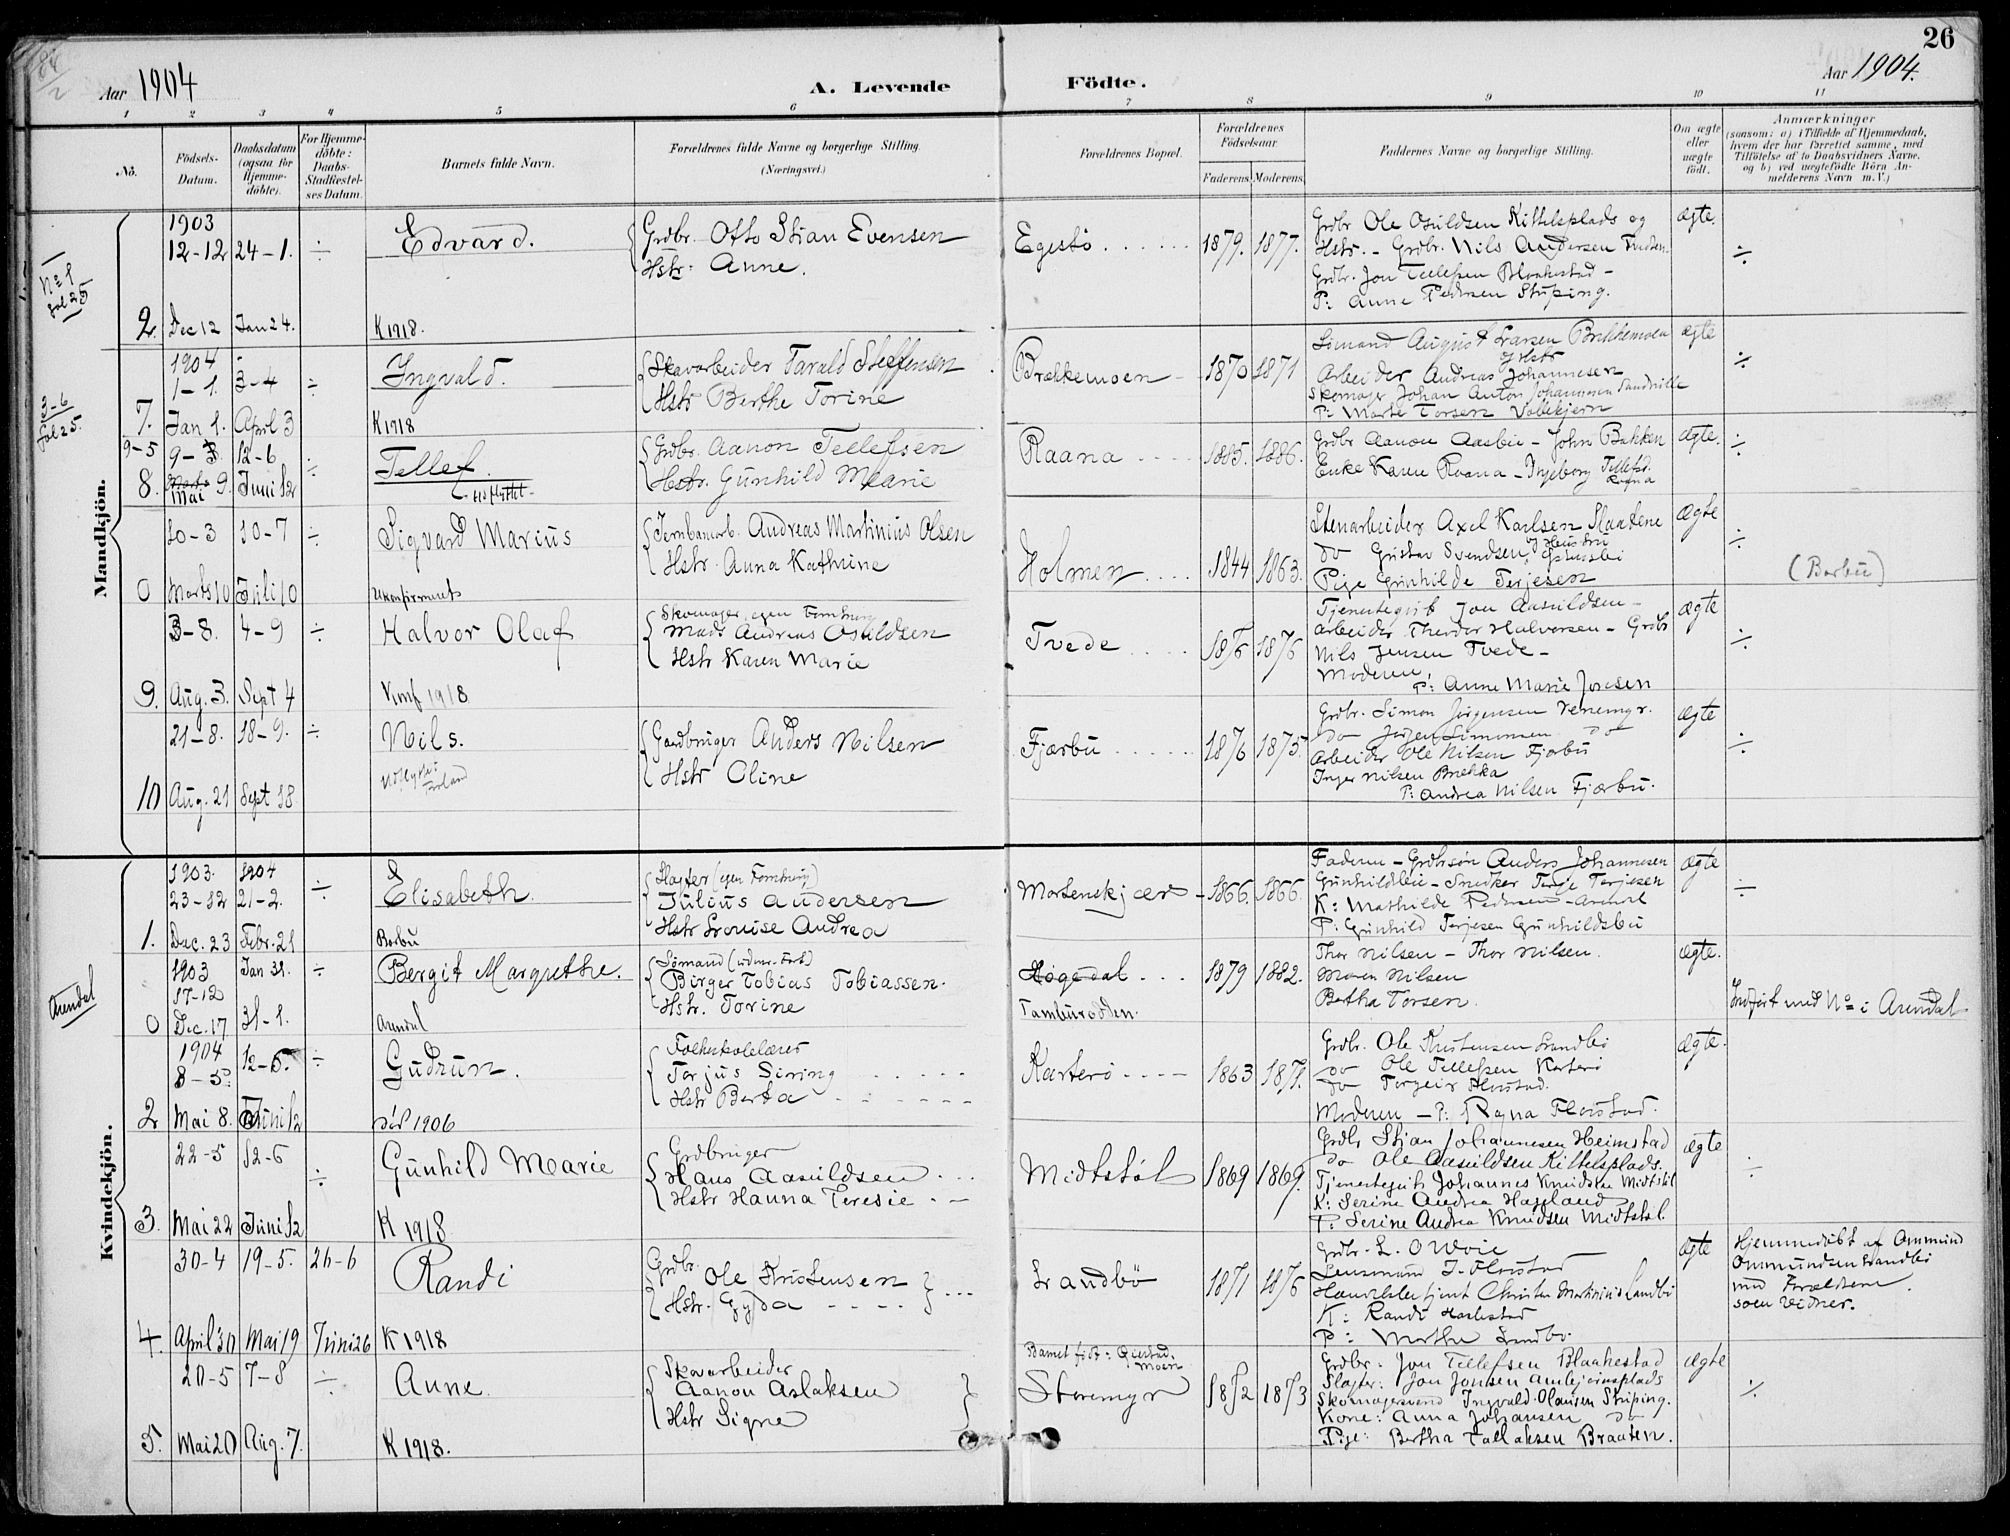 26
Aar 1904
A. Levende Födte.
Aar 1904.
1 2 3 4 5 6 7 8 9 10 11
No.
Födsels-Datum.
Daabsdatum (ogsaa for Hjemme-döbte).
For Hjemme-döbte: Daabs-Stadfæstel-ses Datum.
Barnets fulde Navn.
Forældrenes fulde Navne og borgerlige Stilling. (Næringsvei.)
Forældrenes Bopæl.
Forældrenes Födselsaar.
Faderens. Moderens.
Faddernes Navne og borgerlige Stilling.
Om ægte eller uægte født.
Anmærkninger
(saasom: a) i Tilfælde af Hjemmedaab,
hvem der har forrettet samme, med
Tilföielse af to Daabsvidners Navne,
og b) ved uægtefödte Börn An-
melderens Navn m. V.)
Mandkjön.
No 1
fol 25
1903
12-12 24-1. ÷
Edvard.
Grdbr. Otto Stian Evensen
Hstr: Anne.
Egestö
1879. 1877.
Grdbr Ole Osuldsen Kittelsplads og
Hstr. - Grdbr. Nils Andersen
Grdbr. Jon Tellefsen Blaakestad -
P: Anne Pedersen Stuping.
Ægte.
÷
2. Dec 12 Jan 24.
K 1918.
1904
1-1. 3-4 ÷
Ingvald.
Skovarbeider Tarald Steffensen
Hstr Berthe Torine
Brækkemoen
1870 1871
Sömand August Larsen Brækkemoen
Hstr
Arbeider Andreas Johannesen
Skomager Johan Anton Johannesen
P: Marte Torsen Vollekjern
ægte
÷
3-6
fol 25.
7. Jan 1. April 3
K 1918
9-5
9-3 12-6 ÷
Tellef.
Udflyttet
Grdbr. Aanon Tellefsen
Hstr. Gunhild Marie
Raana
1885. 1886.
Grdbr Aanon Aasbie - John Bakken
Enke Karen Raana - Ingeborg Tellefsd.
Raana
ægte.
÷
8. Mai 9. Juni 12
10-3 10-7 ÷
Sigvard Marius
Jernbanearb. Andreas Martinius Olsen
Hstr. Anna Kathrine
Holmen
1844 1863.
Stenarbeider Axel Karlsen Slaatene
do Gustav Svendsen og Hustru
Pige Gunhilde Terjesen
Ægte
÷
(Barbu)
0 Marts 10 Juli 10
Ukonfirmeret
3-8. 4-9 ÷
Halvor Olaf
Skomager, egen Forretning
Mads Andreas Osuldsen
Hstr Karen Marie
Tvede
1876 1876
Tjenestegut Jon Aasuldsen -
Arbeider Theodor Halvorsen - Grdbr
Nils Jensen Tvede -
Moderen,
P: Anne Marie Josesen
ægte
÷
9. Aug. 3. Sept 4
Konf 1918
21-8. 18-9. ÷
Nils.
Gaardbruger Anders Nilsen
Hstr Oline
Fjærbu
1876 1875.
Grdbr. Simon Jörgensen Venemyr.
do Jörgen Simonsen do
Arbeider Ole Nilsen Fjærbu
Inger Nilsen Brekka
P: Andrea Nilsen Fjærbu.
Ægte
÷
10 Aug. 21 Sept 18
Udflyttet
Kvindekjön.
1903. 1904
23-12 21-2. ÷
Elisabeth.
Slagter (egen Forretning)
Julius Andersen
Hstr Lovise Andrea
Mortenskjær
1866. 1866.
Faderen - Grdbrsön Anders Johannesen
Gunhildsbu - Snedker Terje Terjesen
K: Mathilde Pedersen - Arendal
P: Gunhild Terjesen Gunhildsbu
ægte
÷
1. Dec. 23 Febr. 21
Barbu
Arendal
1903 Jan 31. ÷
17-12
Bergit Margrethe.
Sömand
Birger Tobias Tobiassen.
Hstr. Torine
Högedal
Tamburodden.
1879 1882.
Thor Nilsen - Thor Nilsen.
Maren Nilsen
Bertha Torsen.
ægte.
Indført med No i Arendal
0 Dec. 17 31-1.
Arendal
1904
8-5. 12-6. ÷
Gudrun.
Folkeskolelærer
Torjus Siring
Hstr Berta
Karterö
1863 1871.
Grdbr. Ole Kristensen Landbö
do Ole Tellefsen Karterö
do Torgeir Flovstad.
Moderen - P: Ragna Flovstad.
ægte.
2 Mai 8. Juni 12
död 1906
22-5 12-6 ÷
Gunhild Marie
Grdbruger
Hans Aasuldsen
Hstr Hanna Teresie
Midtstöl
1869 1869.
Grdbr Stian Johannesen Heimstad
do Ole Aasuldsen Kittelsplads.
Tjenestegut Johannes Knudsen Midtstöl
K: Serine Andrea Hagland
P: Serine Andrea Knudsen Midtstöl.
ægte
÷
3. Mai 22 Juni 12
K 1918
30-4 19-5. 26-6
Randi
Grdbr.
Ole Kristensen
Hstr. Gyda
Landbö
1871 1876
Grdbr. L. O Woie
Lensmand J. Flovstad
Handelsbetjent Christen Martinius Landbö
K: Randi
P: Marthe Landbö.
ægte
Hjemmedöbt af Ommund
Ommundsen Landbö
med Forældrene
som Vidner.
4. April 30 Mai 19 Juni 26
K 1918
20-5 7-8 ÷
Anne.
Skovarbeider
Aanon Aslaksen
Hstr Signe
Barnet født: Gjerstad,
Moen
Storemyr
1872 1873
Grdbr: Jon Tellefsen Blaakestad
Slagter: Jon Jonsen
Skomagersvend Ingvald Olausen Stuping.
Kone: Anna Johansen do
Pige: Bertha Tallaksen Braaten.
ægte
÷
5. Mai 20 Aug. 7.
K 1918.